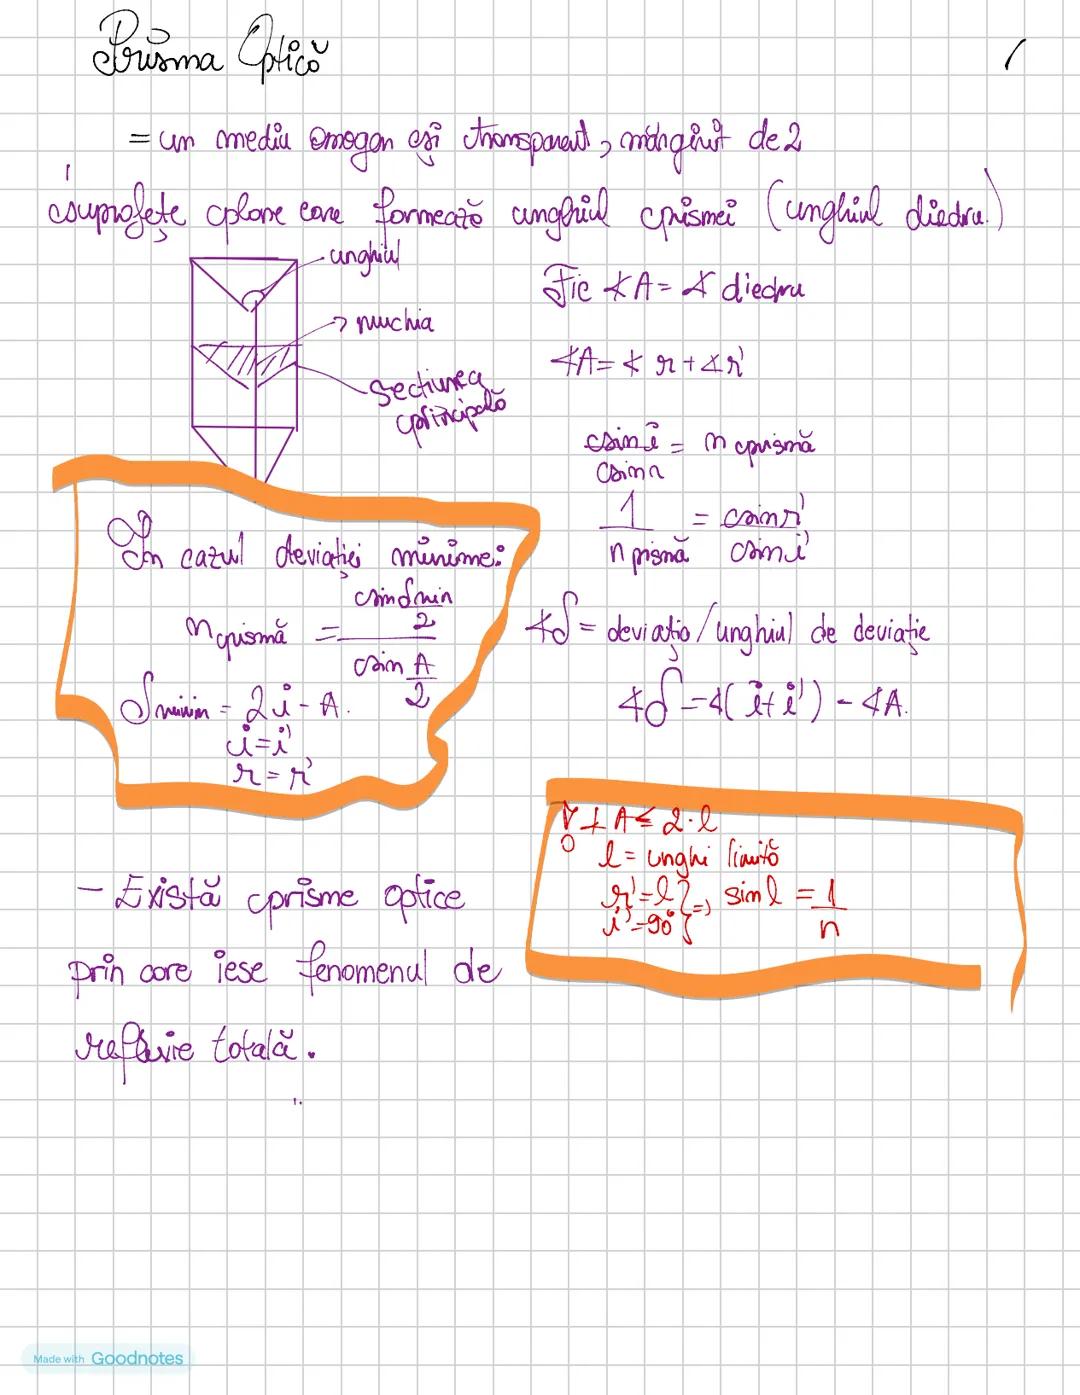 Prisma Optică
= un mediu omogen și transparent, mărginit de 2
suprafețe plane care formează unghiul prismei (unghiul diedru.)
unghiul
muchia
Secțiunea
principală
Fie ∢A = ∢ diedru
∢A = ∢ r + ∢ r'
sin i / sin r = n prismă
1 / n prismă = sin r' / sin i'
∢δ = deviația / unghiul de deviație
∢δ = ∢( i + i' ) - ∢A.
În cazul deviației minime:
n prismă = sin δmin/2 / sin A/2
δ minim = 2i - A.
i = i'
r = r'
∢ A ≤ 2·l
l = unghi limită
r' = l
i' = 90° } => sin l = 1/n
- Există prisme optice
prin care iese fenomenul de
reflexie totală.
Made with Goodnotes